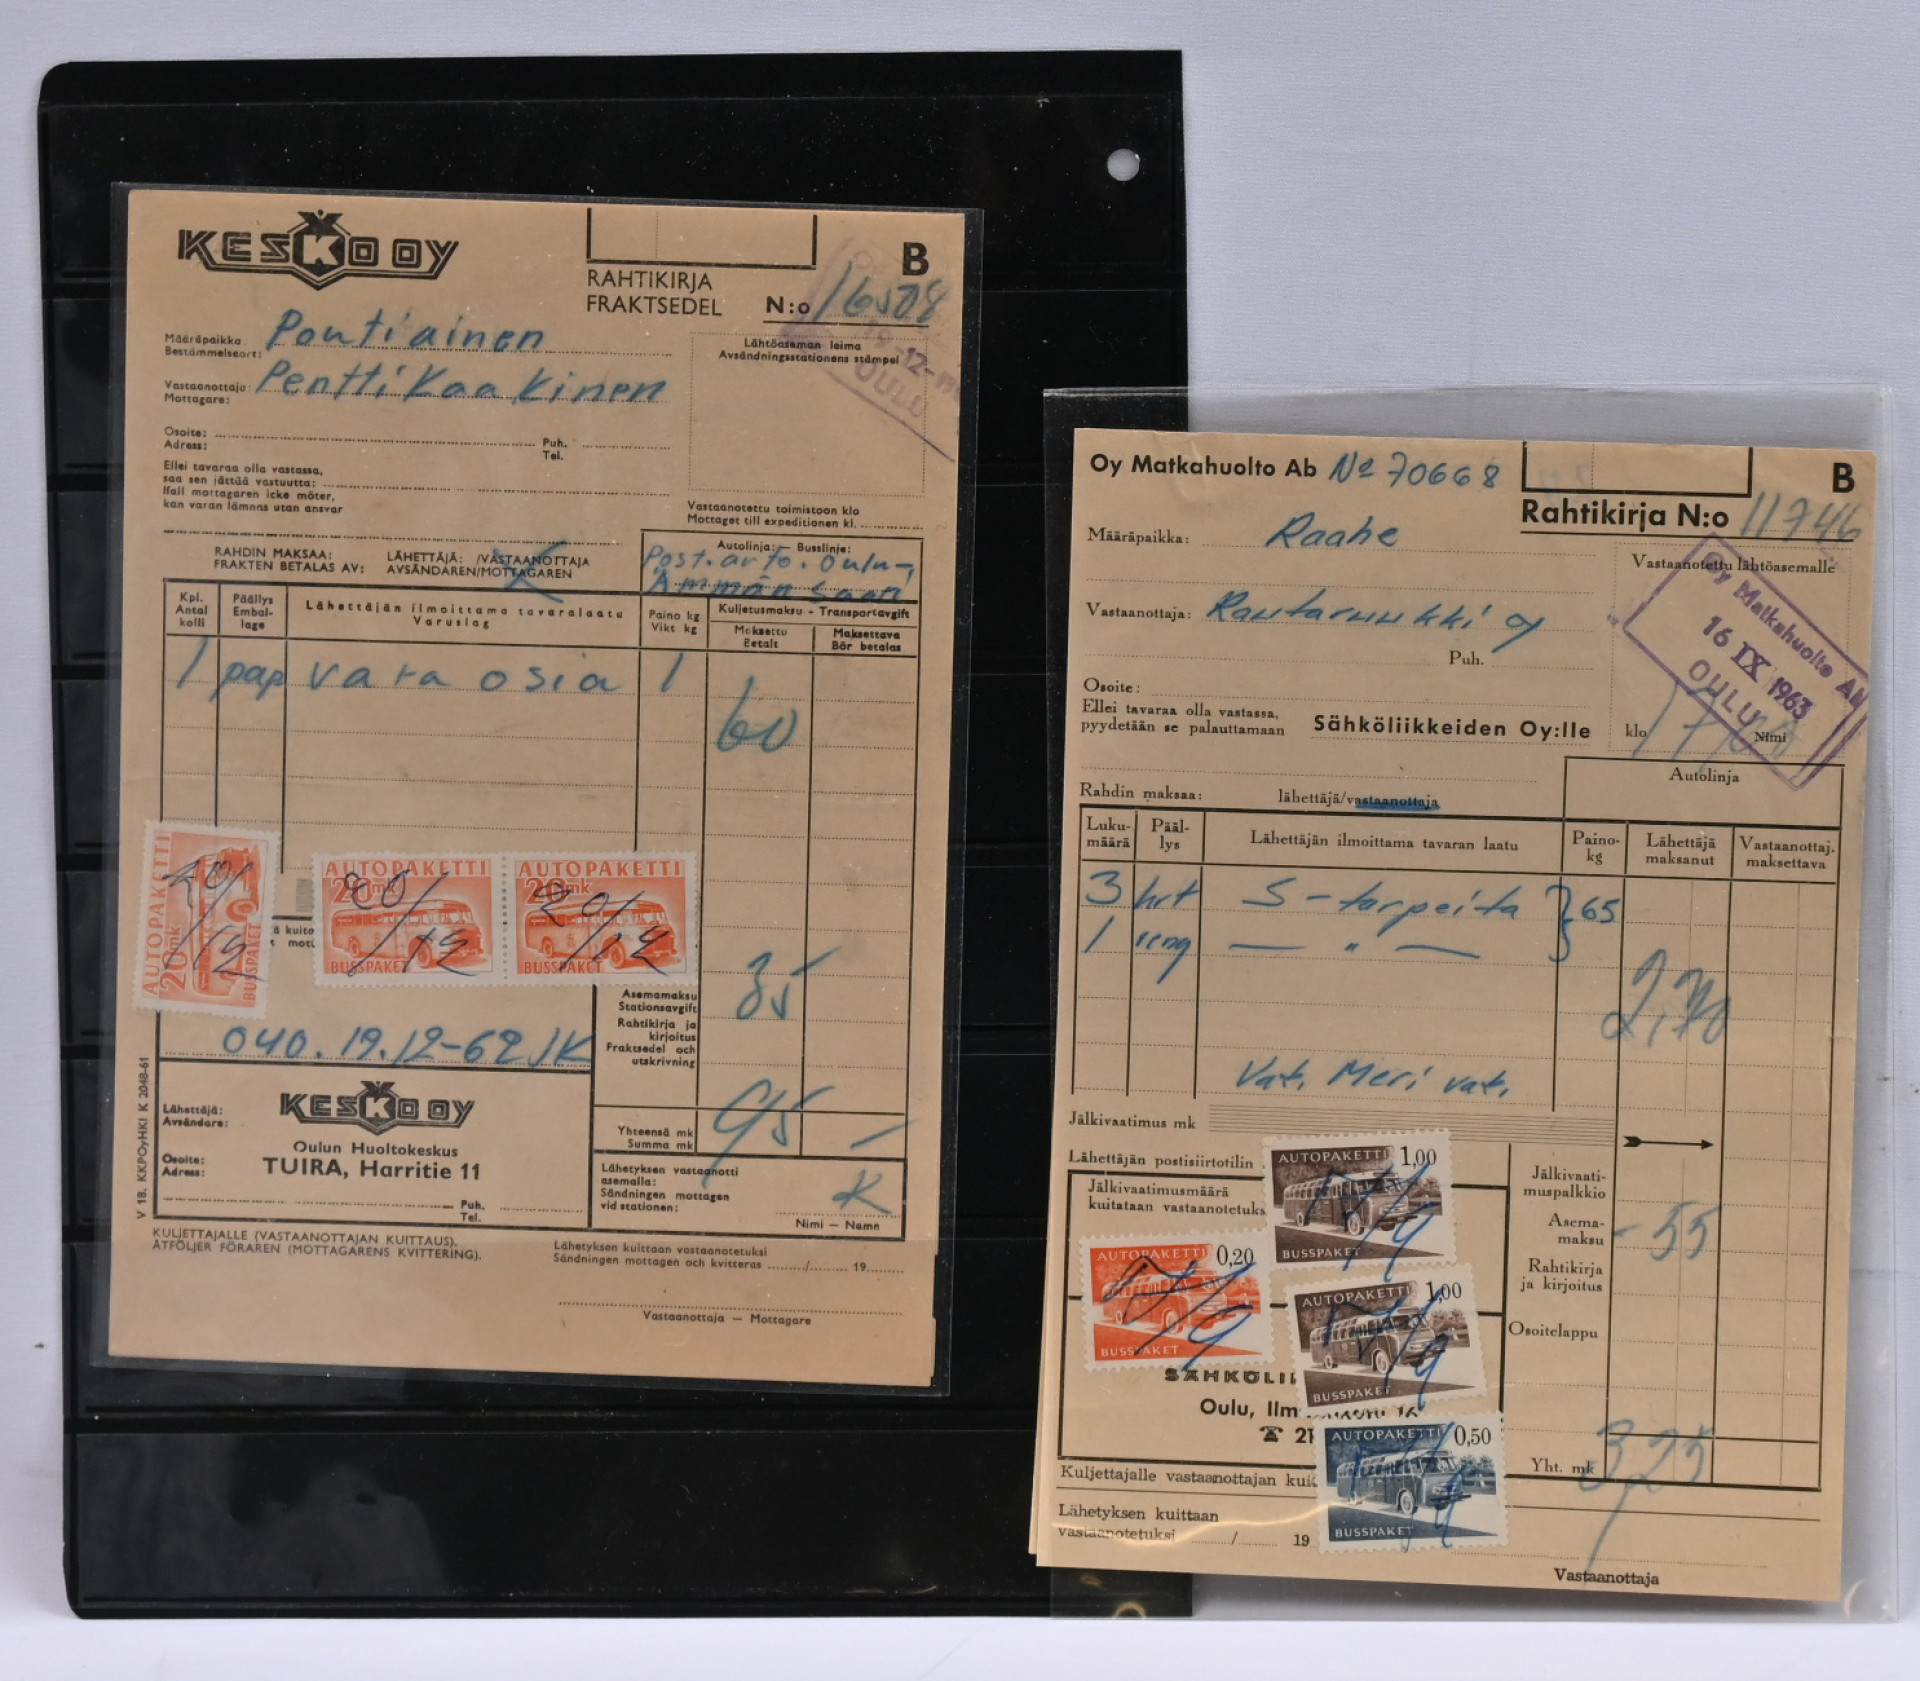 KESKO OY
B
RAHTIKIRJA
FRAKTSEDEL
N:o 16508
Määräpaikka: Pontiainen
Bestämmelseort:
Vastaanottaja: Pentti Kaakinen
Mottagare:
Lähtöaseman leima
Avsändningsstationens stämpel
19-12-
OULU
Osoite:
Adress:
Puh.
Tel.
Ellei tavaraa olla vastassa,
saa sen jättää vastuutta:
Ifall mottagaren icke möter,
kan varan lämnas utan ansvar
Vastaanotettu toimistoon klo
Mottaget till expeditionen kl.
RAHDIN MAKSAA: LÄHETTÄJÄ: /VASTAANOTTAJA
FRAKTEN BETALAS AV: AVSÄNDAREN/MOTTAGAREN
Autolinja: — Busslinje:
Post.auto. Oulu-
Ämmän saari
Kpl. Antal kolli
Päällys Embal- lage
Lähettäjän ilmoittama tavaralaatu
Varuslag
Paino kg
Vikt kg
Kuljetusmaksu - Transportavgift
Maksettu
Betalt
Maksettava
Bör betalas
1 pap vara osia 1
60
AUTOPAKETTI
20mk
BUSSPAKET
20/12
AUTOPAKETTI
20mk
BUSSPAKET
20/12
AUTOPAKETTI
20mk
BUSSPAKET
20/12
Asemamaksu
Stationsavgift
35
Rahtikirja ja
kirjoitus
Fraktsedel och
utskrivning
040. 19.12-62 JK
Yhteensä mk
Summa mk
95 —
Lähettäjä:
Avsändare:
KESKO OY
Oulun Huoltokeskus
Osoite:
Adress:
TUIRA, Harritie 11
Puh.
Tel.
Lähetyksen vastaanotti
asemalla:
Sändningen mottagen
vid stationen:
K
Nimi — Namn
V 18. KKPOyHKI K 2048-61
KULJETTAJALLE (VASTAANOTTAJAN KUITTAUS).
ÅTFÖLJER FÖRAREN (MOTTAGARENS KVITTERING).
Lähetyksen kuittaan vastaanotetuksi
Sändningen mottagen och kvitteras / 19
Vastaanottaja — Mottagare
Oy Matkahuolto Ab No 70668
B
Rahtikirja N:o 11746
Määräpaikka: Raahe
Vastaanotettu lähtöasemalle
Oy Matkahuolto Ab
16 IX 1963
OULU
Vastaanottaja: Rautaruukki oy
Puh.
Osoite:
Ellei tavaraa olla vastassa,
pyydetään se palauttamaan Sähköliikkeiden Oy:lle
klo
Nimi
Autolinja
Rahdin maksaa: lähettäjä/vastaanottaja
Luku- määrä
Pääl- lys
Lähettäjän ilmoittama tavaran laatu
Paino- kg
Lähettäjä maksanut
Vastaanottaj. maksettava
3 hrt S-tarpeita } 65
1 reng — " —
2,70
Vat. Meri vat.
Jälkivaatimus mk
Lähettäjän postisiirtotilin
Jälkivaatimusmäärä
kuitataan vastaanotetuks
Jälkivaati-
muspalkkio
Asema-
maksu
-55
Rahtikirja
ja kirjoitus
Osoitelappu
AUTOPAKETTI 1,00
BUSSPAKET
17/9
AUTOPAKETTI 0,20
BUSSPAKET
17/9
AUTOPAKETTI 1,00
BUSSPAKET
17/9
SÄHKÖLII
Oulu, Ilm
☎ 21
AUTOPAKETTI 0,50
BUSSPAKET
17/9
Yht. mk 3,25
Kuljettajalle vastaanottajan kui
Lähetyksen kuittaan
vastaanotetuksi / 19
Vastaanottaja